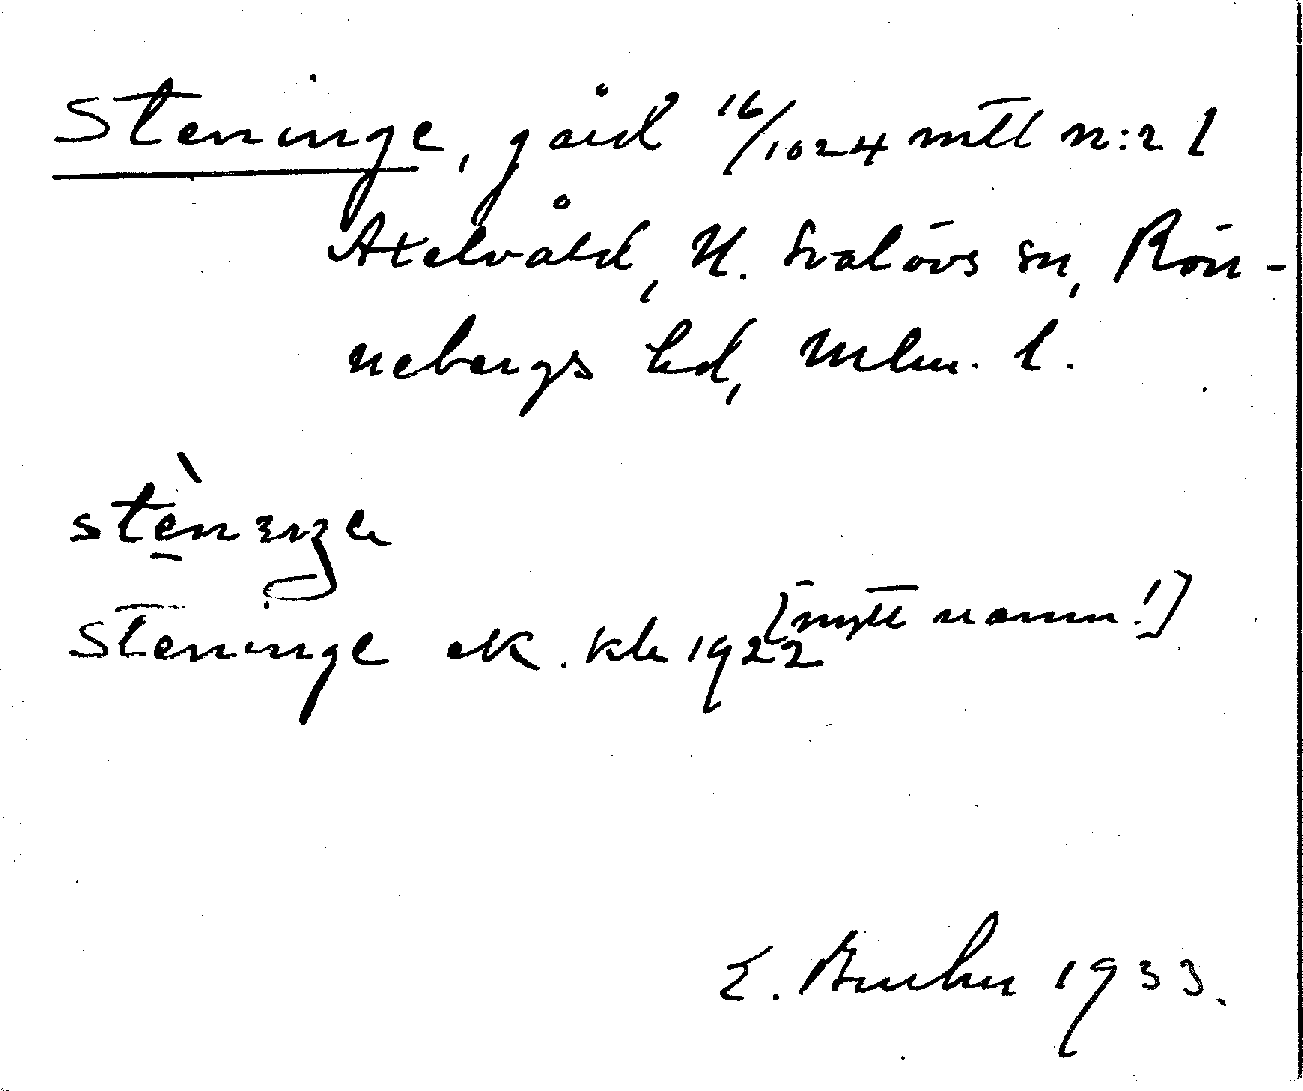 Steninge, gård 16/1024 mtl n:r 1
Axelvåld, N. Svalövs sn, Rön-
nebergs hd, Mlm. l.
Steninge ek. kb 1922 [nytt namn!]
E. 1933.